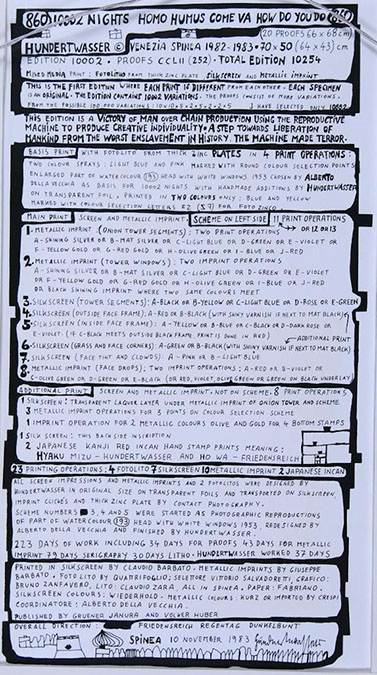 860 10002 NIGHTS HOMO HUMUS COME VA HOW DO YOU DO 860
(20 PROOFS 66 x 68 cm)
HUNDERTWASSER © VENEZIA SPINEA 1982-1983 • 70 x 50 (64 x 43) cm
EDITION 10002 • PROOFS CCLII (252) • TOTAL EDITION 10254
MIXED MEDIA PRINT: FOTOLITHO FROM THICK ZINC PLATE SILKSCREEN AND METALLIC IMPRINT
THIS IS THE FIRST EDITION WHERE EACH PRINT IS DIFFERENT FROM EACH OTHER • EACH SPECIMEN
IS AN ORIGINAL • THE EDITION CONTAINS 10002 VARIATIONS. THE PROOFS CONSIST OF MORE VARIATIONS •
I HAVE SELECTED ONLY 10002
THIS EDITION IS A VICTORY OF MAN OVER CHAIN PRODUCTION USING THE REPRODUCTIVE
MACHINE TO PRODUCE CREATIVE INDIVIDUALITY • A STEP TOWARDS LIBERATION OF
MANKIND FROM THE WORST ENSLAVEMENT IN HISTORY, THE MACHINE MADE TERROR.
BASIS PRINT WITH FOTOLITO FROM THICK ZINC PLATES IN 4 PRINT OPERATIONS:
TWO COLOUR SPRAYS: LIGHT BLUE AND PINK MARKED WITH ROUND COLOUR SELECTION POINTS
ENLARGED PART OF WATERCOLOUR 193 HEAD WITH WHITE WINDOWS 1953 CHOSEN BY ALBERTO
DELLA VECCHIA AS BASIS FOR 10002 NIGHTS WITH HANDMADE ADDITIONS BY HUNDERTWASSER
ON TRANSPARENT FOIL. PRINTED IN TWO COLOURS ONLY: BLUE AND YELLOW
MARKED WITH COLOUR SELECTION LETTERS
MAIN PRINT SCREEN AND METALLIC IMPRINT: SCHEME ON LEFT SIDE 11 PRINT OPERATIONS
OR 12 OR 13
1. METALLIC IMPRINT (ONION TOWER SEGMENTS); TWO PRINT OPERATIONS
A-SHINING SILVER OR B-MAT SILVER OR C-LIGHT BLUE OR D-GREEN OR E-VIOLET OR
F-YELLOW GOLD OR G-RED GOLD OR H-OLIVE GREEN OR I-BLUE OR J-RED
2. METALLIC IMPRINT (TOWER WINDOWS); TWO IMPRINT OPERATIONS
A-SHINING SILVER OR B-MAT SILVER OR C-LIGHT BLUE OR D-GREEN OR E-VIOLET
OR F-YELLOW GOLD OR G-RED GOLD OR H-OLIVE GREEN OR I-BLUE OR J-RED
OR BLACK SHINING IMPRINT WHERE TWO SAME COLOURS MEET
3. SILKSCREEN (TOWER SEGMENTS); A-BLACK OR B-YELLOW OR C-LIGHT BLUE OR D-ROSE OR E-GREEN
4. SILKSCREEN (OUTSIDE FACE FRAME); A-RED OR B-BLACK (WITH SHINY VARNISH IF NEXT TO MAT BLACK)
5. SILKSCREEN (INSIDE FACE FRAME); A-YELLOW OR B-BLUE OR C-BLACK OR D-DARK ROSE OR
E-VIOLET (IF C-BLACK MEETS OUTSIDE BLACK FRAME PRINT IS DONE IN RED)
ADDITIONAL PRINT
6. SILKSCREEN (GRASS AND FACE CORNERS) A-GREEN OR B-BLACK (WITH VARNISH IF NEXT TO MAT BLACK)
7. SILKSCREEN (FACE TINT AND CLOUDS): A-PINK OR B-LIGHT BLUE
8. METALLIC IMPRINT (FACE DROPS); TWO IMPRINT OPERATIONS; A-RED OR B-VIOLET OR
C-OLIVE GREEN OR D-GREEN OR E-BLACK (OR RED, VIOLET, OLIVE GREEN OR GREEN ON BLACK UNDERLAY
ADDITIONAL PRINT SCREEN AND METALLIC IMPRINT • NOT ON SCHEME: 8 PRINT OPERATIONS
1 SILKSCREEN: TRANSPARENT LAQUER LAYER UNDER METALLIC IMPRINT OF ONION TOWER AND SCHEME.
3 METALLIC IMPRINT OPERATIONS FOR 3 POINTS ON COLOUR SELECTION SCHEME
1 IMPRINT OPERATION FOR 2 METALLIC COLOURS OLIVE AND GOLD FOR 4 BOTTOM STAMPS
1 SILK SCREEN: THIS BACKSIDE INSCRIPTION
2 JAPANESE KANJI RED INCAN HAND STAMP PRINTS MEANING:
HYAKU MIZU - HUNDERTWASSER AND HO WA - FRIEDENSREICH
23 PRINTING OPERATIONS: 4 FOTOLITO 7 SILKSCREEN 10 METALLIC IMPRINT 2 JAPANESE INCAN
ALL SCREEN IMPRESSIONS AND METALLIC IMPRINTS AND 2 FOTOLITOS WERE DESIGNED BY
HUNDERTWASSER IN ORIGINAL SIZE ON TRANSPARENT FOILS AND TRANSPORTED ON SILKSCREEN,
IMPRINT CLICHÉS AND THICK ZINC PLATE BY CONTACT PHOTOGRAPHY.
SCHEME NUMBERS 3, 4 AND 5 WERE STARTED AS PHOTOGRAPHIC REPRODUCTIONS
OF PART OF WATERCOLOUR 193 HEAD WITH WHITE WINDOWS 1953, REDESIGNED BY
ALBERTO DELLA VECCHIA AND FINISHED BY HUNDERTWASSER.
223 DAYS OF WORK INCLUDING 34 DAYS FOR PROOFS 43 DAYS FOR METALLIC
IMPRINT 79 DAYS SERIGRAPHY 30 DAYS LITHO • HUNDERTWASSER WORKED 37 DAYS
PRINTED IN SILKSCREEN BY CLAUDIO BARBATO • METALLIC IMPRINTS BY GIUSEPPE
BARBATO • FOTOLITO BY QUATRIFOGLIO; SELETTORE VITTORIO SALVADORETTI, GRAFICO:
BRUNO ZANFAVERO, LITO: CLAUDIO ZARA, ALL IN SPINEA • PAPER: FABRIANO.
SILKSCREEN COLOURS: WIEDERHOLD • METALLIC COLOURS: KURZ OR IMPORTED BY CRISPI
COORDINATORE: ALBERTO DELLA VECCHIA.
PUBLISHED BY GRUENER JANURA AND VOLKER HUBER
OVERALL DIRECTION: FRIEDENSREICH REGENTAG DUNKELBUNT
SPINEA 10 NOVEMBER 1983